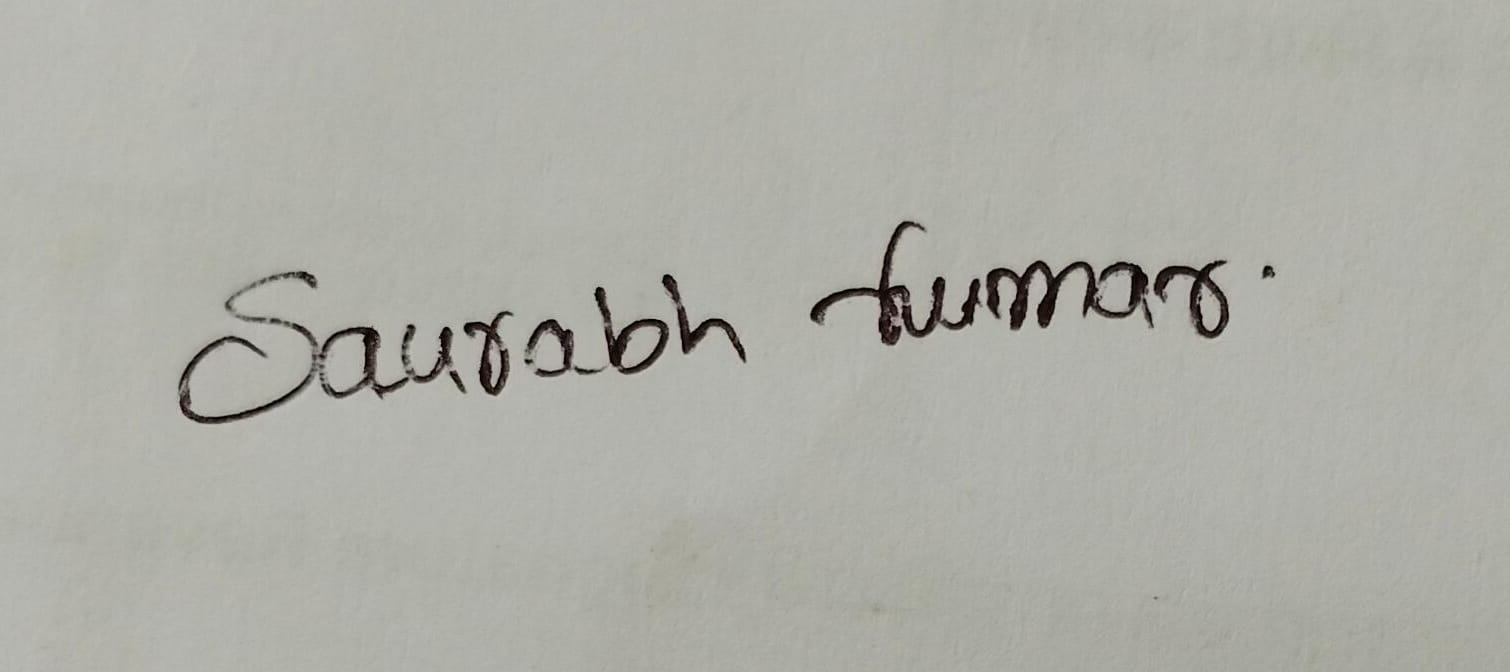 Saurabh Kumar.